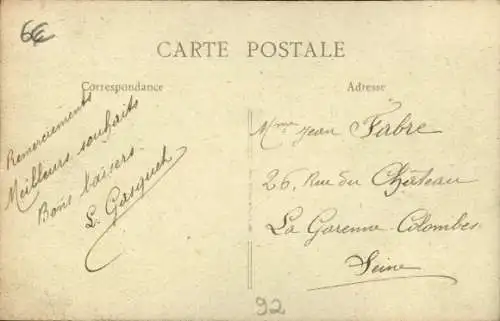 6€
CARTE POSTALE
Correspondance
Remerciements
Meilleurs souhaits
Bons baisers.
L. Gasquet
Adresse
Mme Jean Fabre
26 Rue du Château
La Garenne Colombes
Seine
92